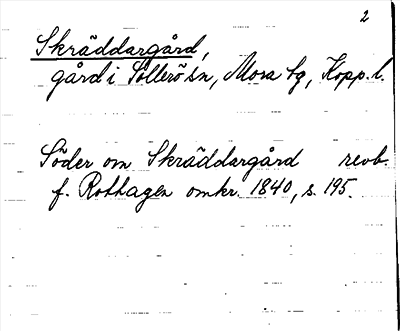 2
Skräddargård,
gård i Sollerö sn, Mora tg, Kopp. l.
Söder om Skräddargård revb.
f. Rothagen omkr. 1840, s. 195.